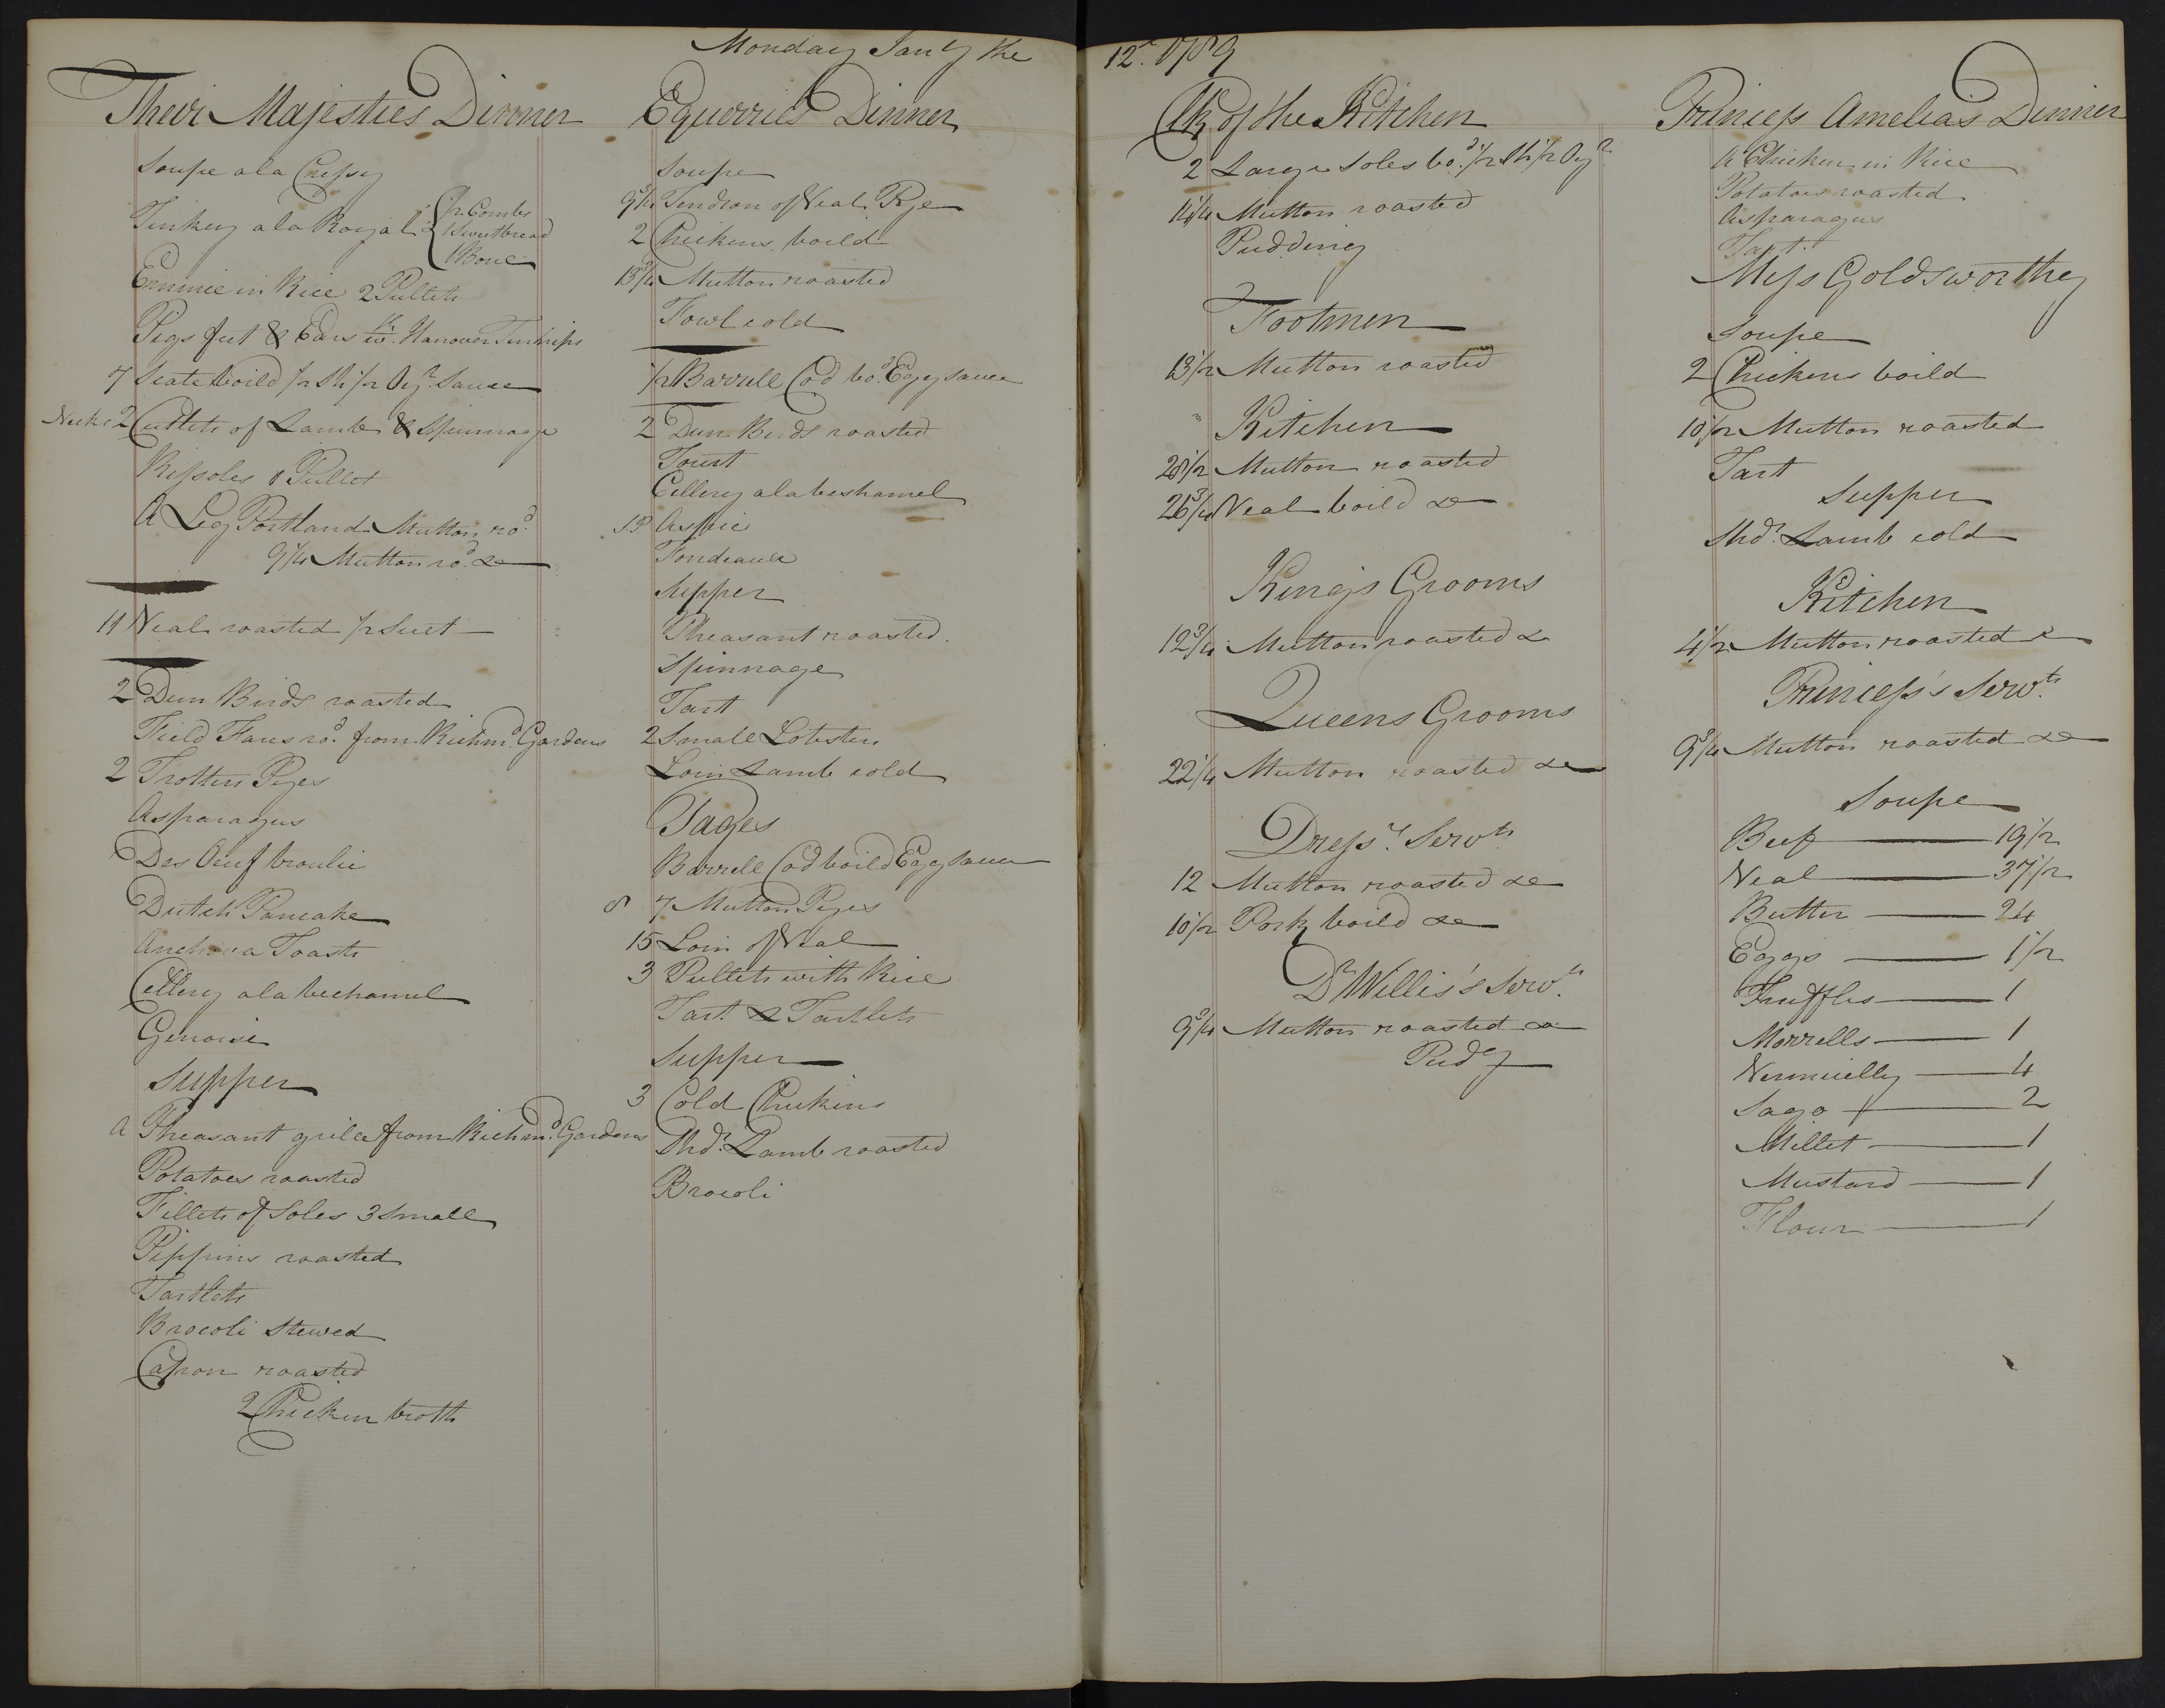 Monday Jan'y the 12th 1789
Their Majesties Dinner
Soupe a la Cressy
Turkey a la Royal 2
1/2 Combs
1 Sweetbread
1 Bone
Emmie in Rice 2 Pullets
Pigs feet & Ears wth Hanover Turnips
7 Scate boild 1/2 Sh 1/2 Oyr Sauce
Necks 2 Cutlets of Lamb & Spinnage
Rissoles 1 Pullet
A Leg Portland Mutton rod
9 1/4 Mutton rod &c
11 Veal roasted 1/2 Suet
2 Dun Birds roasted
Field Fares rod from Richmd Gardens
2 Trotters Pyes
Asparagus
Des Oeuf broulie
Dutch Pancake
Anchova Toasts
Cellery a la bechamel
Genoise
Supper
A Pheasant grile from Richmd Gardens
Potatoes roasted
Fillets of Soles 3 Small
Pippins roasted
Tartlets
Brocoli Stewed
Capon roasted
2 Chicken broth
Equerries Dinner
Soupe
9 3/4 Tendron of Veal Pye
2 Chickens boild
13 3/4 Mutton roasted
Fowl cold
1/2 Barrell Cod bod Egg Sauce
2 Dun Birds roasted
Tourt
Cellery a la beshamel
Aspic
Fondeaux
Supper
Pheasant roasted
Spinnage
Tart
2 Small Lobsters
Loin Lamb cold
Pages
Barrell Cod boild Egg Sauce
8 7 Mutton Pyes
15 Loin of Veal
3 Pullets with Rice
Tart & Tartlets
Supper
3 Cold Chickens
Shdr Lamb roasted
Brocoli
Clk of the Kitchen
2 Large Soles bod 1/2 Sh 1/2 Oyr
14 1/4 Mutton roasted
Pudding
Footmen
13 1/2 Mutton roasted
Kitchen
28 1/2 Mutton roasted
26 3/4 Veal boild &c
Kings Grooms
12 3/4 Mutton roasted &c
Queens Grooms
22 1/4 Mutton roasted &c
Dressrs Servts
12 Mutton roasted &c
10 1/2 Pork boild &c
Dr Willis's Servts
9 3/4 Mutton roasted &c
Pudg
Princess Amelia's Dinner
A Chicken in Rice
Potatoes roasted
Asparagus
Tart
Miss Goldsworthy
Soupe
2 Chickens boild
10 1/2 Mutton roasted
Tart
Supper
Shdr Lamb cold
Kitchen
4 1/2 Mutton roasted &
Princess's Servts
9 3/4 Mutton roasted &c
Soupe
Beef 19 1/2
Veal 37 1/2
Butter 24
Eggs 1 1/2
Truffles 1
Morrells 1
Vermicelly 4
Sago 2
Millet 1
Mustard 1
Flour 1